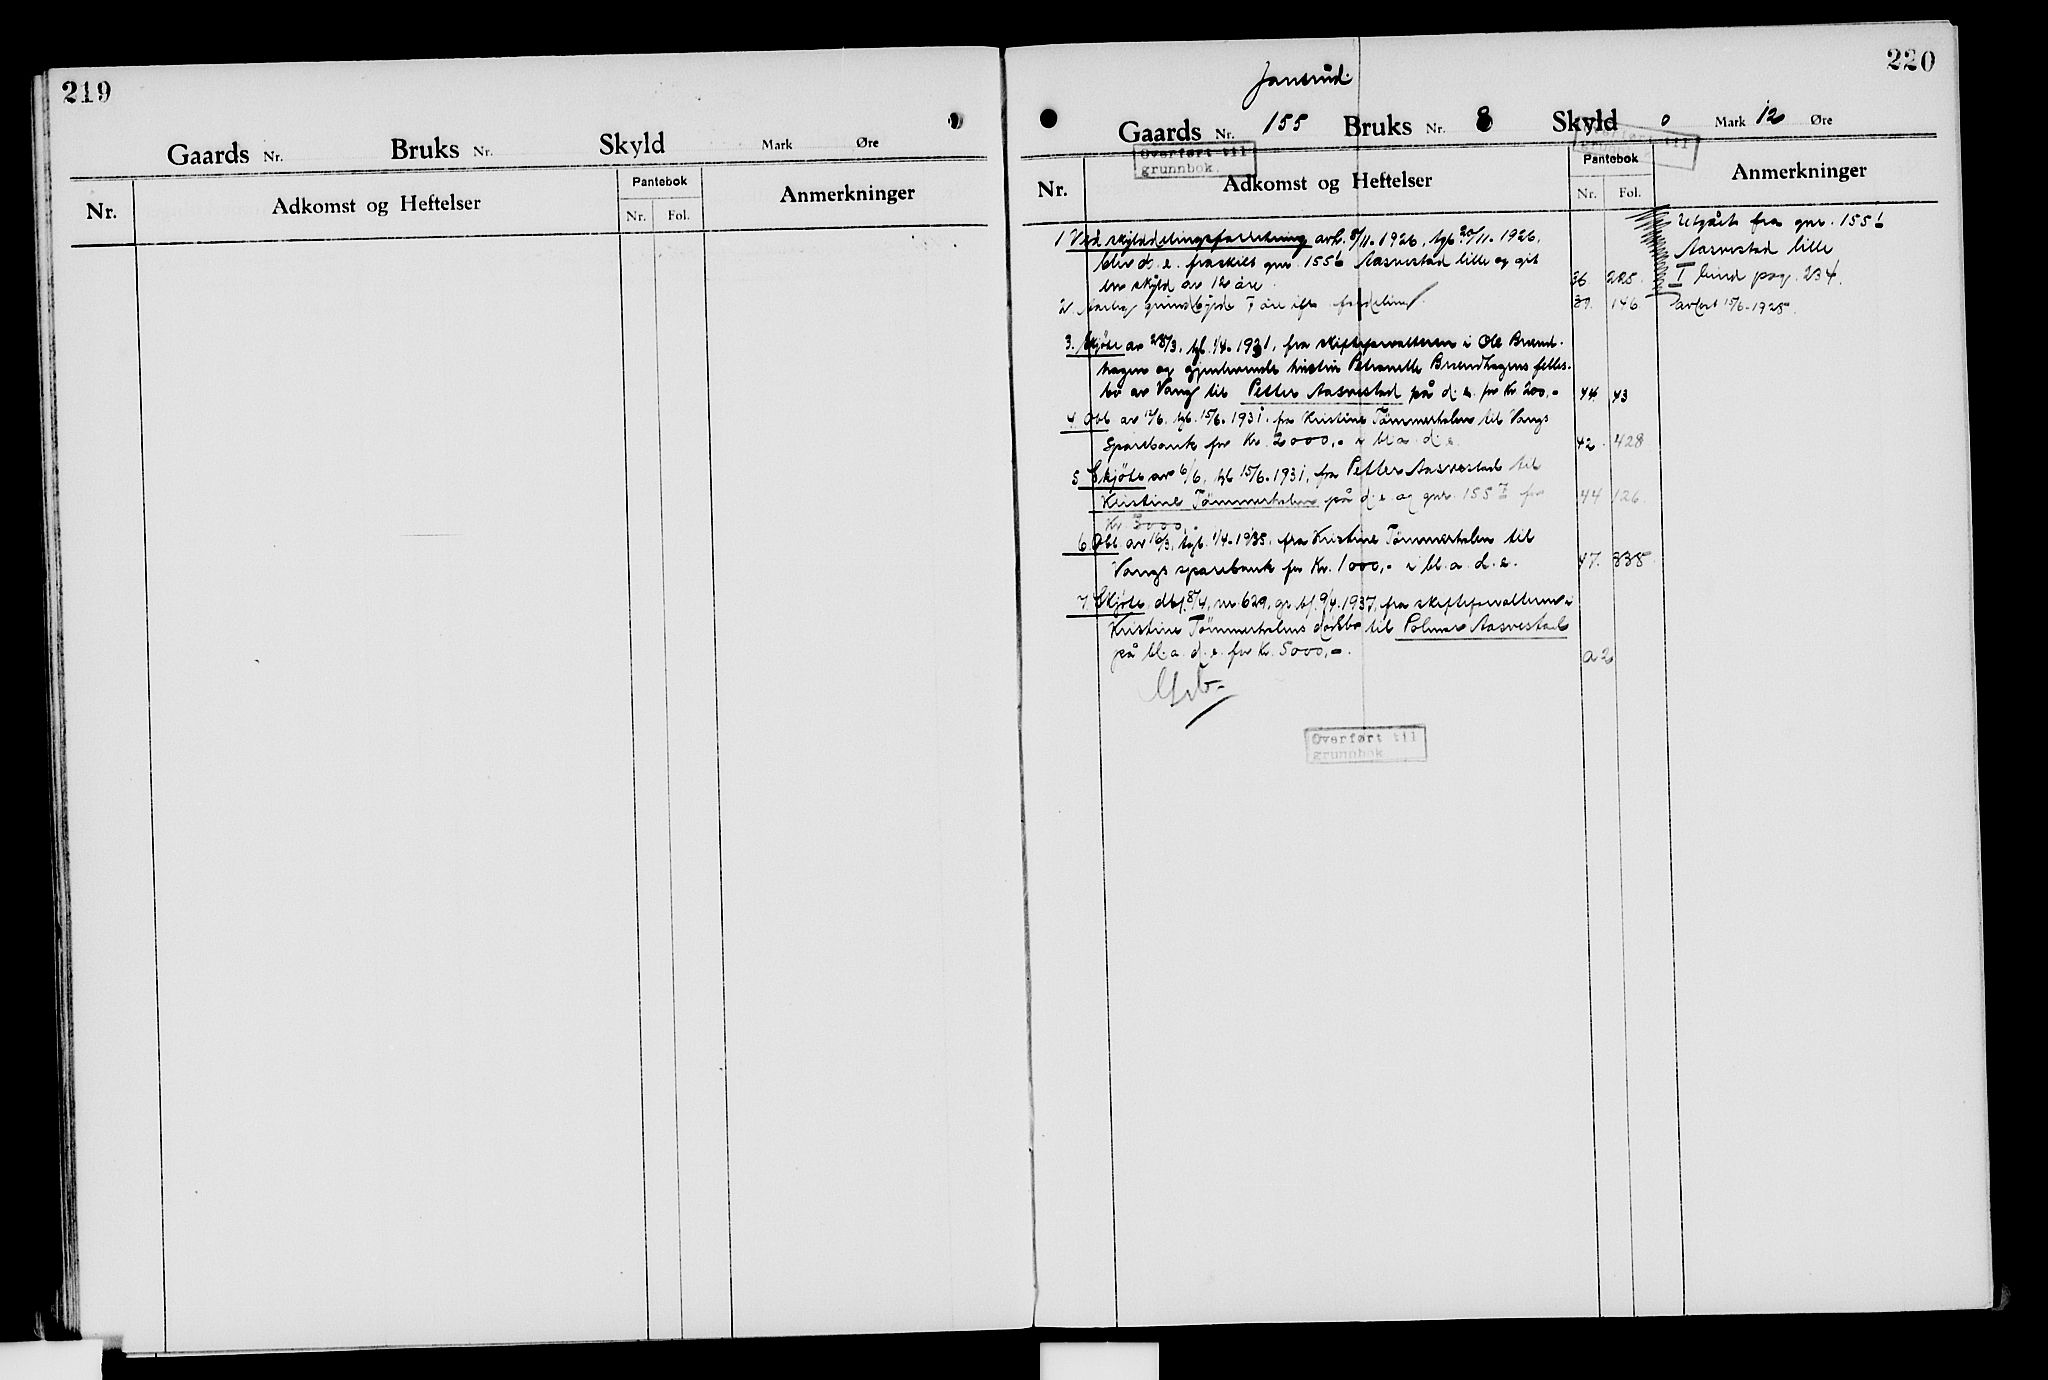 219
Gaards Nr. Bruks Nr. Skyld Mark Øre
Nr. Adkomst og Heftelser Pantebok Nr. Fol. Anmerkninger
220
Jansrud.
Gaards Nr. 155 Bruks Nr. 8 Skyld 0 Mark 12 Øre
Overført til
grunnbok.
Nr. Adkomst og Heftelser Pantebok Nr. Fol. Anmerkninger
1 Ved skylddelingsforretning avh. 8/11-1926, tgl. 20/11-1926,
blev d. e. fraskilt gnr. 155 Aasvestad lille og git
en skyld av 12 øre. 36 225.
Utgått fra gnr. 155
Aasvestad lille
I bind pag. 234.
2. Aarlig grundbyrde øre 39. 146
15/6-1928.
3. Skjöte av 28/3, tgl. 1/4-1931, fra skifteforvalteren i Ole Brænd-
hagen og gjenlevende hustru Petronelle Brændhagens felles-
bo av Vang til Petter Aasvestad på d. e. for Kr 200,- 44. 43
4. Obl av 12/6, tgl. 15/6-1931. fra Kristine Tömmerholen til Vangs
Sparebank for Kr. 2000,- i bl. a. d. e. 42. 428
5 Skjöte av 6/6, tgl 15/6-1931, fra Petter Aasvestad til
Kristine Tömmerholen på d. e. og gnr. 155 7 for 44 126.
Kr. 3000,-
6. Obl. av 16/3, tgl. 1/4-1935, fra Kristine Tömmerholen til
Vangs sparebank for Kr. 1000,- i bl. a. d. e. 47. 838
7. Skjöte, dbf. 8/4, nr. 629, gr. bf. 9/4-1937, fra skifteforvalteren i
Kristine Tömmerholens dödsbo til Polmar Aasvestad
på bl. a. d. e. for Kr. 5000,-. a 2
Overført til
grunnbok